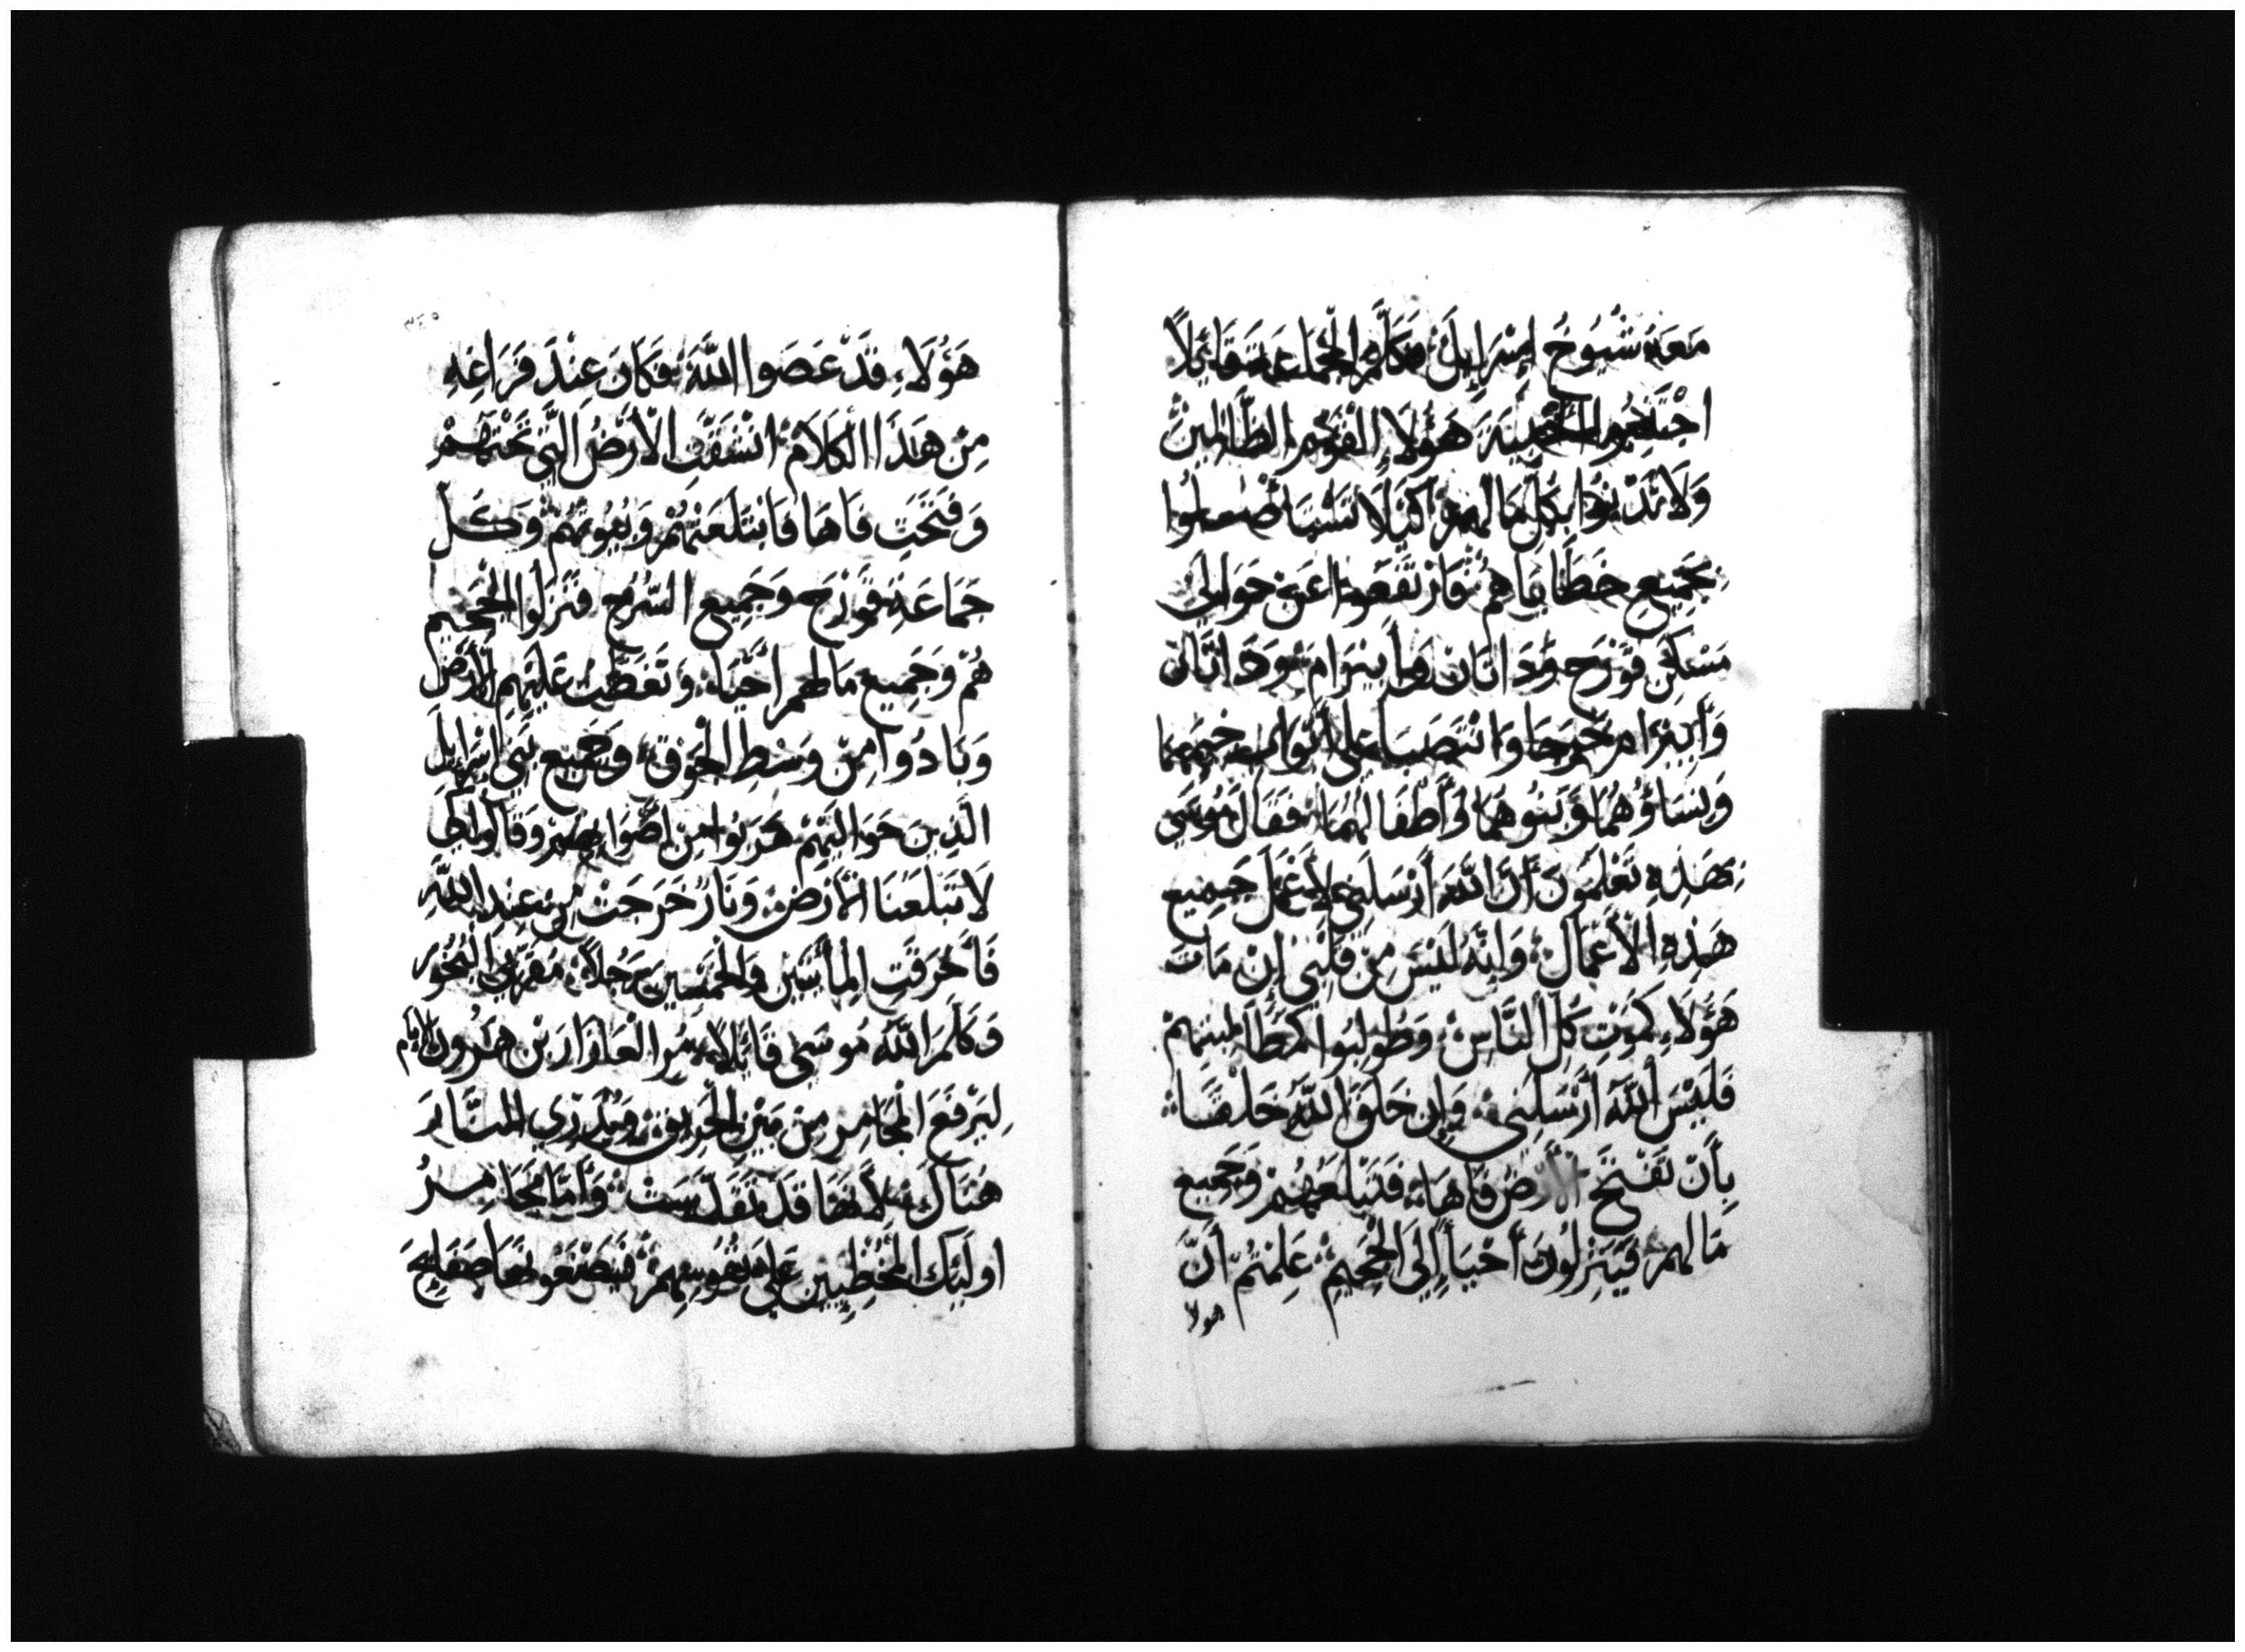 مَعَهُ شُيُوخُ إِسْرَايِلَ فَكَلَّمَ الْجَمَاعَةَ قَائِلًا
اجْتَنِبُوا أَخْبِيَةَ هَؤُلَاءِ الْقَوْمِ الظَّالِمِينَ
وَلَا تَدْنُوا بِكُلِّ مَا لَهُمْ كَيْلَا
بِجَمِيعِ خَطَايَاهُمْ فَارْتَفَعُوا عَنْ حَوَالِي
مَسْكَنِ قَوْرَحَ وَدَاثَانَ وَأَبِيرَامَ وَدَاثَانَ
وَأَبِيرَامَ خَرَجَا وَانْتَصَبَا عَلَى أَبْوَابِ خِيَمِهِمَا
وَنِسَاؤُهُمَا وَبَنُوهُمَا وَأَطْفَالُهُمَا فَقَالَ مُوسَى
بِهَذِهِ تَعْلَمُونَ أَنَّ اللَّهَ أَرْسَلَنِي لِأَعْمَلَ جَمِيعَ
هَذِهِ الْأَعْمَالِ وَأَنَّهُ لَيْسَ مِنْ قَلْبِي إِنْ مَاتَ
هَؤُلَاءِ كَمَوْتِ كُلِّ النَّاسِ وَطُولِبُوا
فَلَيْسَ اللَّهُ أَرْسَلَنِي وَإِنْ خَلَقَ اللَّهُ خَلْقًا
بِأَنْ تَفْتَحَ الْأَرْضُ فَاهَا فَتَبْلَعُهُمْ وَجَمِيعَ
مَا لَهُمْ فَيَنْزِلُونَ أَحْيَاءً إِلَى الْجَحِيمِ عَلِمْتُمْ أَنَّ
هولا
هَؤُلَاءِ قَدْ عَصَوا اللَّهَ فَكَانَ عِنْدَ فَرَاغِهِ
مِنْ هَذَا الْكَلَامِ انْشَقَّتِ الْأَرْضُ الَّتِي تَحْتَهُمْ
وَفَتَحَتِ فَاهَا فَابْتَلَعَتْهُمْ وَبُيُوتَهُمْ وَكُلَّ
جَمَاعَةِ قَوْرَحَ وَجَمِيعَ السَّرْحِ فَنَزَلُوا الْجَحِيمَ
هُمْ وَجَمِيعُ مَا لَهُمْ أَحْيَاءً وَتَغَطَّتْ عَلَيْهِمِ الْأَرْضُ
وَبَادُوا مِنْ وَسْطِ الْجَوْقِ وَجَمِيعُ بَنِي إِسْرَايِلَ
الَّذِينَ حَوَالَيْهِمْ هَرَبُوا مِنْ أَصْوَاتِهِمْ وَقَالُوا لِكَي
لَا تَبْلَعَنَا الْأَرْضُ وَنَارٌ خَرَجَتْ مِنْ عِنْدِ اللَّهِ
فَأَحْرَقَتِ الْمِأَتَيْنِ وَالْخَمْسِينَ رَجُلًا مُقَرِّبِي الْبُخُورَ
وَكَلَّمَ اللَّهُ مُوسَى قَائِلًا مُرِ الْعَازَارَ بْنَ هَرُونَ الْإِمَام
لِيَرْفَعَ الْمَجَامِرَ مِنْ بَيْنِ الْحَرِيقِ وَيُذَرِّي النَّارَ
هُنَاكَ لِأَنَّهَا قَدْ تَقَدَّسَتْ وَأَمَّا مَجَامِرُ
أُولَئِكَ الْمُخْطِيِينَ عَلَى نُفُوسِهِمْ فَيَصْنَعُونَهَا صَفَايِحَ